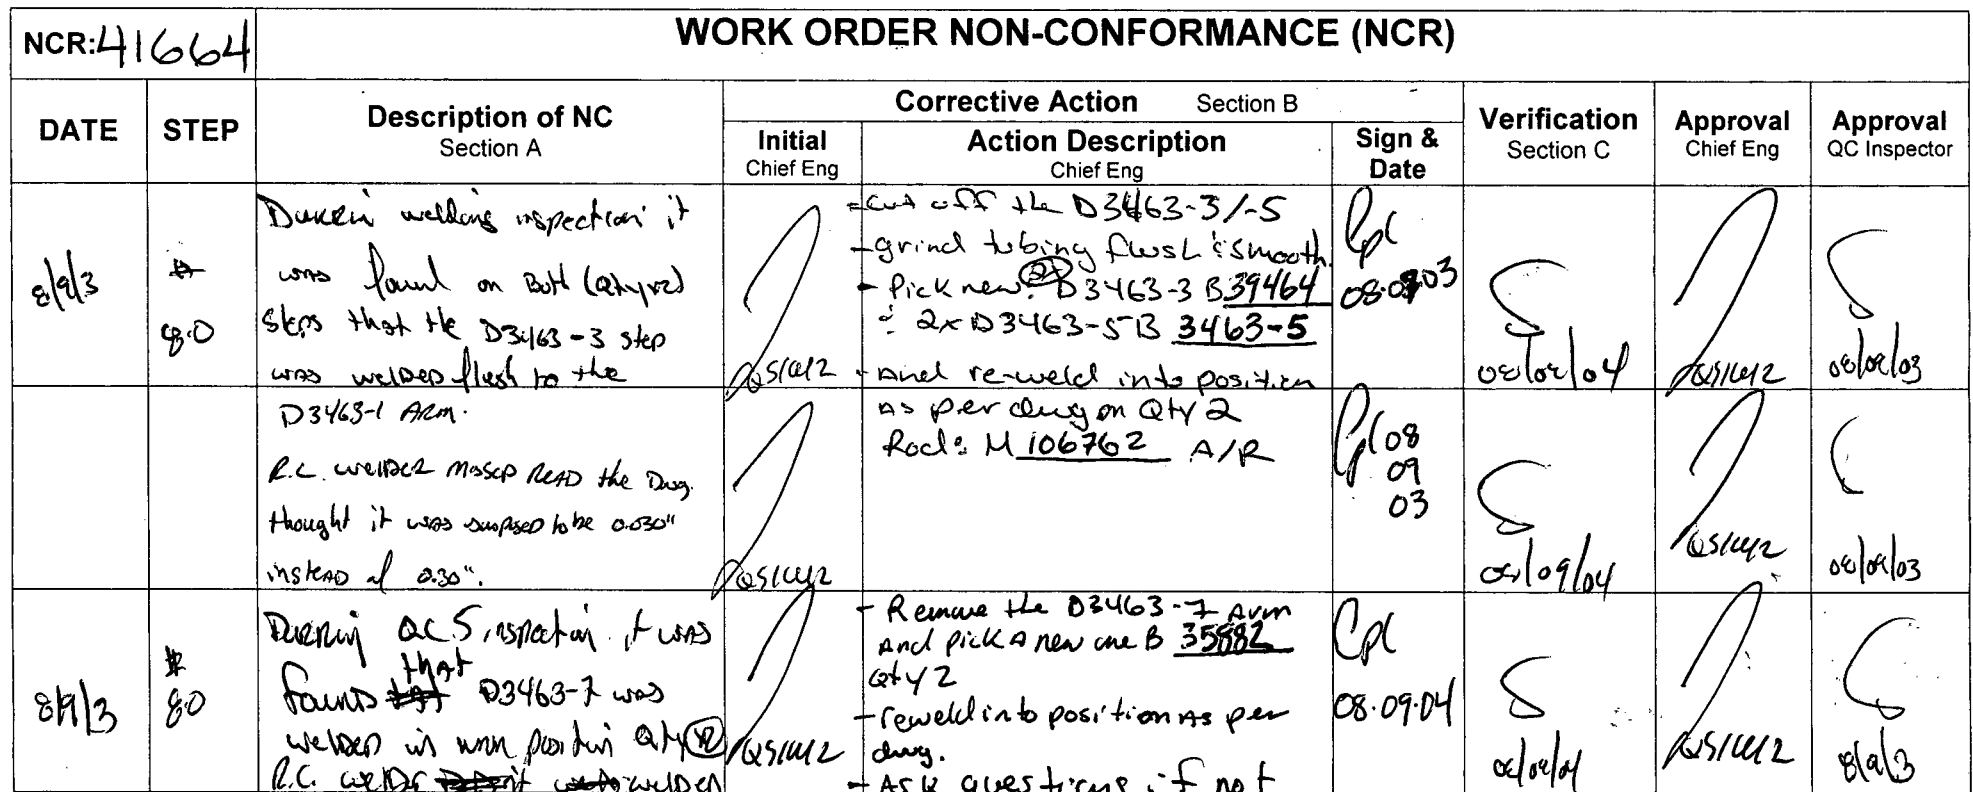 NCR: 41664
WORK ORDER NON-CONFORMANCE (NCR)
DATE
STEP
Description of NC
Section A
Corrective Action Section B
Initial
Chief Eng
Action Description
Chief Eng
Sign &
Date
Verification
Section C
Approval
Chief Eng
Approval
QC Inspector
8/9/3
8.0
welding inspection it
was found on Both (Qty x2)
steps that the D3463-3 step
was welded flush to the
- Cut off the D3463-3/-5
- grind tubing flush & smooth.
- Pick new D3463-3 B 39464
& 2x D3463-5 B 3463-5
- And re-weld into position
08.09.03
08/09/04
08/09/03
D3463-1 ARM.
R.C. welder READ the Dwg.
thought it was supposed to be 0.030"
instead of 0.30".
As per dwg on Qty 2
Rod: M 106762 A/R
08
09
03
08/09/04
08/09/03
8/9/3
8.0
inspection it was
found that D3463-7 was
welded in position Qty x2
R.C. welder welded
- Remove the D3463-7 Arm
And pick A new one B 35882
Qty 2
- reweld into position As per
dwg.
- Ask questions if not
08.09.04
8/9/3